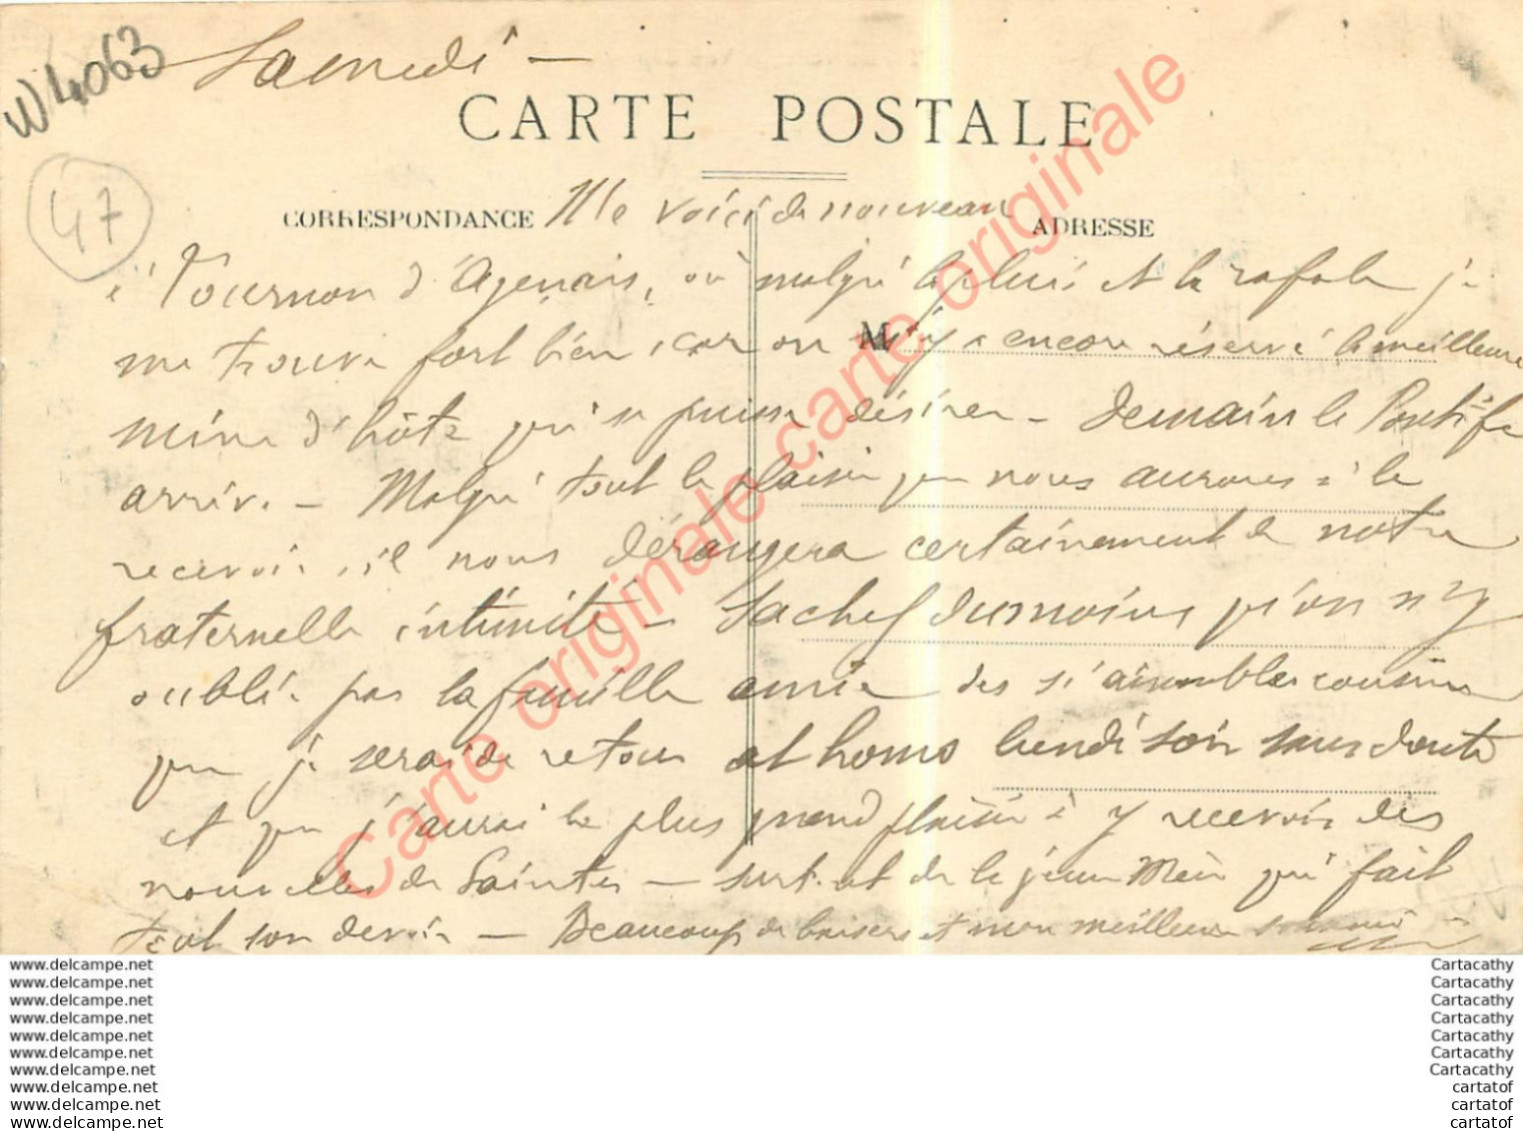 W4063
Samedi —
CARTE POSTALE
47
CORRESPONDANCE
Me voici de nouveau
ADRESSE
à Tournon d'Agenais, où malgré la pluie et la rafale je
me trouve fort bien, car on
M
m'y a encore réservé la meilleure
mine d'hôte qui se puisse désirer — Demain le Pontife
arrive. — Malgré tout le plaisir que nous aurons à le
recevoir, il nous dérangera certainement de notre
fraternelle intimité — Sachez du moins qu'on n'y
oublie pas la famille amie des si aimables cousins
que je serai de retour at home lundi soir sans doute
et que j'aurai le plus grand plaisir à y recevoir des
nouvelles de Saintes — surtout de le jeune qui fait
tout son devoir — Beaucoup de baisers et mon meilleur souvenir
Carte originale carte originale carte originale
www.delcampe.net
www.delcampe.net
www.delcampe.net
www.delcampe.net
www.delcampe.net
www.delcampe.net
www.delcampe.net
www.delcampe.net
www.delcampe.net
www.delcampe.net
Cartacathy
Cartacathy
Cartacathy
Cartacathy
Cartacathy
Cartacathy
Cartacathy
cartatof
cartatof
cartatof